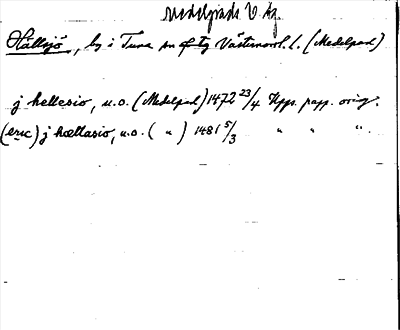 Medelpads V kg.
Hällsjö, by i Tuna sn Västernorrl. l. (Medelpad)
j hellesio, u.o. (Medelpad) 1472 23/4 Upps. papp. orig.
(eric) j hællasio, u.o. ( " ) 1481 5/3 " " "